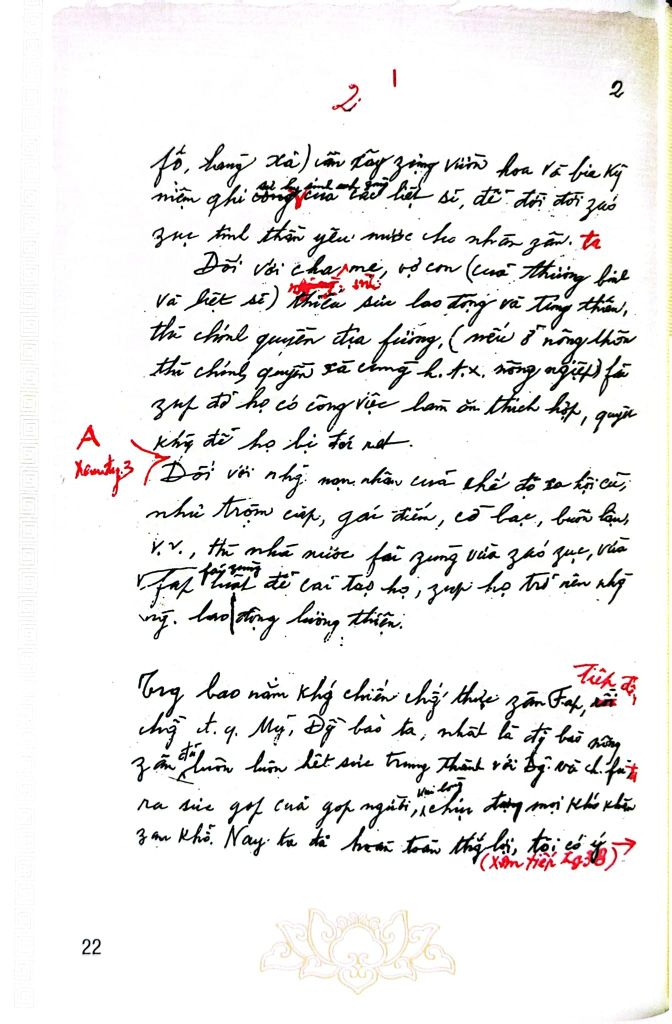 2 1
2
fố, hang xã) cần xây zựng vườn hoa và bia kỷ
niệm ghi công sự hy sinh anh zũng của các liệt sĩ, để đời đời záo
zục tinh thần yêu nước cho nhân zân. ta
Đối với cha mẹ, vợ con (cuả thương binh
và liệt sĩ) thiếu sức lao động và túng thiếu,
thì chính quyền địa fương, (nếu ở nông thôn
thì chính quyền xã cùng h.t.x. nông ngiệp) fải
zúp đỡ họ có công việc làm ăn thích hợp, quyết
khg để họ bị đói rét.
A
Xem tg. 3
Đối với nhg nạn nhân cuả chế độ xã hội cũ,
như trộm cắp, gái điếm, cờ bạc, buôn lậu,
v.v., thì nhà nước fải zùng vừa záo zục, vừa
fải zùng
fap luật để cải tạo họ, zúp họ trở nên nhg
ng. lao động lương thiện.
tiếp đó,
Trg bao năm khg chiến chg thực zân Fap,
chg đ.q. Mỹ, Đg bào ta, nhất là đg bào nông
zân đã luôn luôn hết sức trung thành với Đg và ch.fủ ta
ra sức góp cuả góp người, vui lòng chịu đựng mọi khó khăn
zan khổ. Nay ta đã hoàn toàn thg lợi, tôi có ý →
(Xem tiếp tg 3B)
22